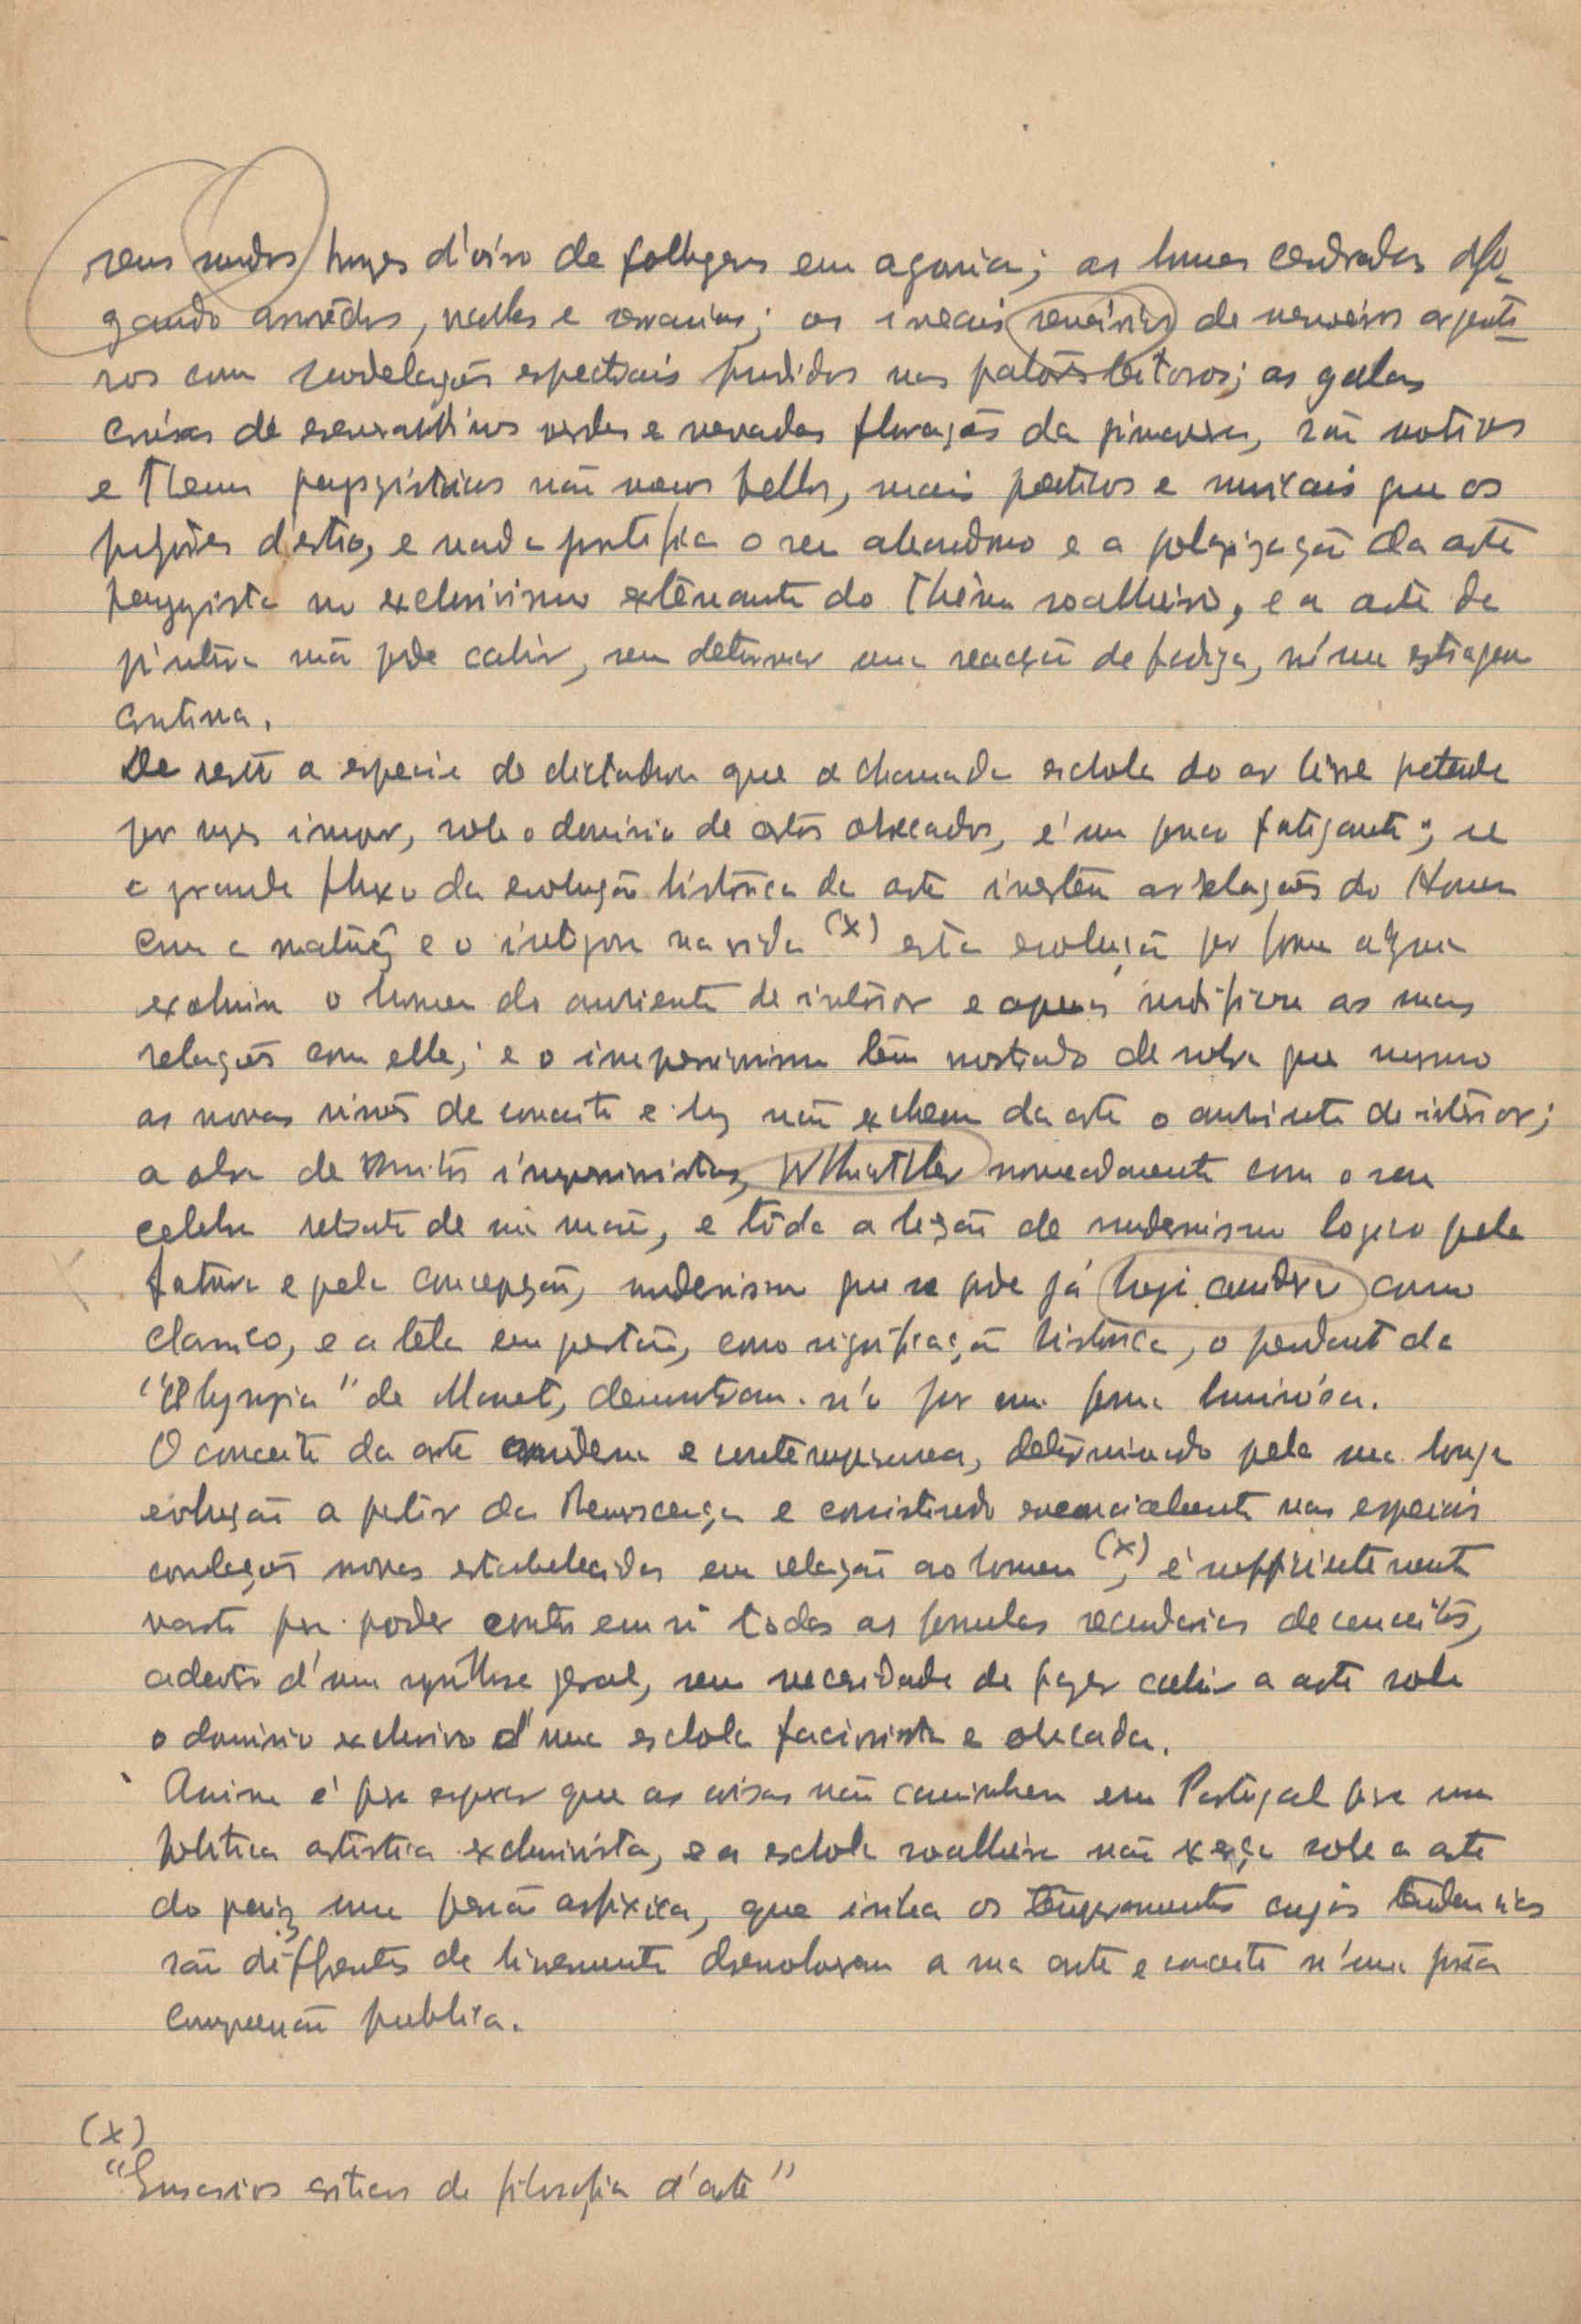 seus mudos d'oiro de folhagens em agonia; as brumas cendradas afo-
gando arvoredos, valles e serranias; os irreais de nevoeiros argenti-
nos com modelações espectrais nos; as galas
de verdes e nevadas florações da primavera, são motivos
e themas paysgisticos não menos bellos, mais poeticos e musicais que os
d'estio, e nada justifica o seu abandono e a polarização da arte
paysgista no exclusivismo extenuante do thema soalheiro, e a arte da
pintura não pode cahir, sem determinar uma reacção de fadiga, n'uma estiagem
continua.
De resto a especie de dictadura que a chamada eschola do ar livre pretende
por vezes impor, sob o dominio de certos obcecados, é um pouco fatigante; se
o grande fluxo da evolução histórica da arte as relações do Homem
com a e o na vida (x) esta evolução por forma alguma
excluiu o homem do ambiente de interior e apenas modificou as suas
relações com elle; e o impressionismo tem mostrado de sobra que mesmo
as novas visões de conceito e luz não excluem da arte o ambiente de interior;
a obra de muitos impressionistas, Whistller nomeadamente com o seu
celebre retrato de sua mae, e tôda a lição de modernismo logico pela
fatura e pela concepção, modernismo que se pode já hoje como
classico, e a tela em questão, como significação historica, o pendant da
"Olympia" de Manet, demonstram-n'o por uma forma luminósa.
O conceito da arte moderna e contemporanea, determinado pela sua longa
evolução a partir da Renascença e consistindo essencialmente nas especiais
condições novas estabelecidas em relação ao homem (x), é sufficientemente
vasto para poder conter em si todas as formulas secundarias de conceitos,
adentro d'uma synthese geral, sem necessidade de fazer cahir a arte sob
o dominio exclusivo d'uma eschola facciosista e obcecada.
Assim é para esperar que as coisas não caminhem em Portugal para uma
politica artistica exclusivista, e a eschola soalheira não exerça sobre a arte
do paiz uma pressão asfixica, que iniba os temperamentos cujas tendencias
são differentes de livremente desenvolverem a sua arte e conceito n'uma justa
compreensão publica.
(x)
"Ensaios criticos de filosofia d'arte"